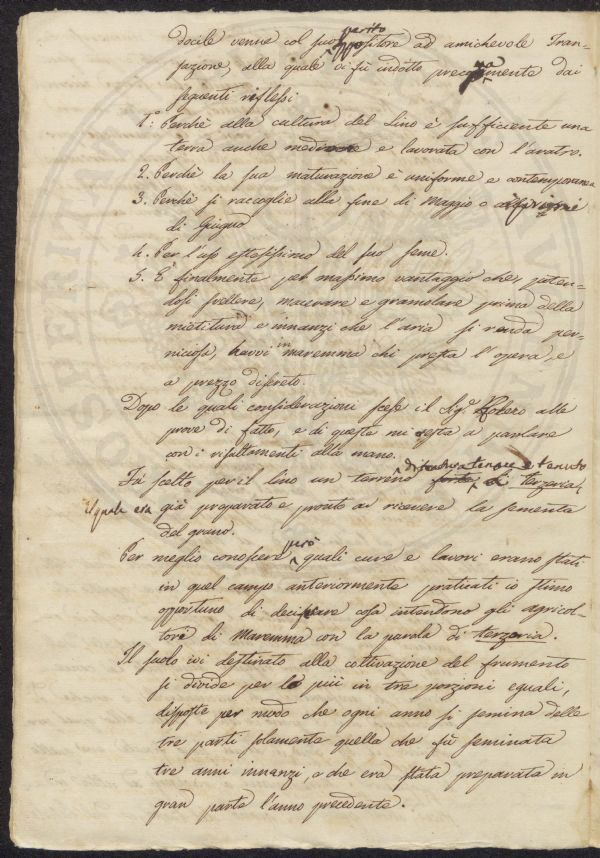 docile venne col suo perito oppositore ad amichevole Tran-
sazione, alla quale vi fù indotto precisamente dai
seguenti riflessi
1.° Perchè alla cultura del Lino è sufficiente una
terra anche mediocre e lavorata con l'aratro.
2. Perchè la sua maturazione è uniforme e contemporanea
3. Perchè si raccoglie alla fine di Maggio o
di Giugno
4. Per l'uso estesissimo del suo seme.
5. E finalmente pel massimo vantaggio che, poten-
dosi svellere, macerare e gramolare prima della
mietitura e innanzi che l'aria si renda per-
niciosa, havvi in maremma chi presta l'opera, e
a prezzo discreto.
Dopo le quali considerazioni scese il Sig.r Robero alle
prove di fatto, e di queste mi resta a parlare
con i risultamenti alla mano.
Fù scelto per il lino un terreno di natura tenace e tenuto
forte, di terzeria,
il quale era già preparato e pronto a ricevere la sementa
del grano.
Per meglio conoscere però quali cure e lavori erano stati
in quel campo anteriormente praticati io stimo
opportuno di decifrare cosa intendono gli agricol-
tori di Maremma con la parola di terzeria.
Il suolo ivi destinato alla coltivazione del frumento
si divide per lo più in tre porzioni eguali,
disposte per modo che ogni anno si semina delle
tre parti solamente quella che fù seminata
tre anni innanzi, o che era stata preparata in
gran parte l'anno precedente.